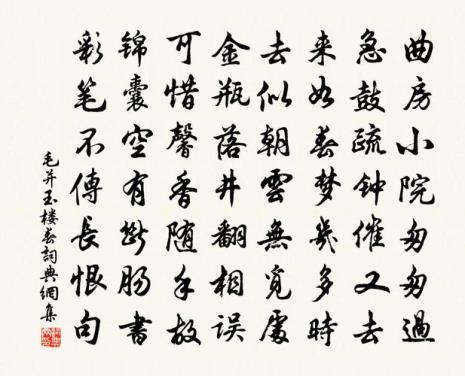 曲房小院匆匆過
急鼓疏钟催又去
来如春梦幾多時
去似朝雲無覓處
金瓶落井翻相误
可惜馨香随手故
锦囊空有断肠書
彩笔不傳長恨句
毛并玉楼春詞典網集